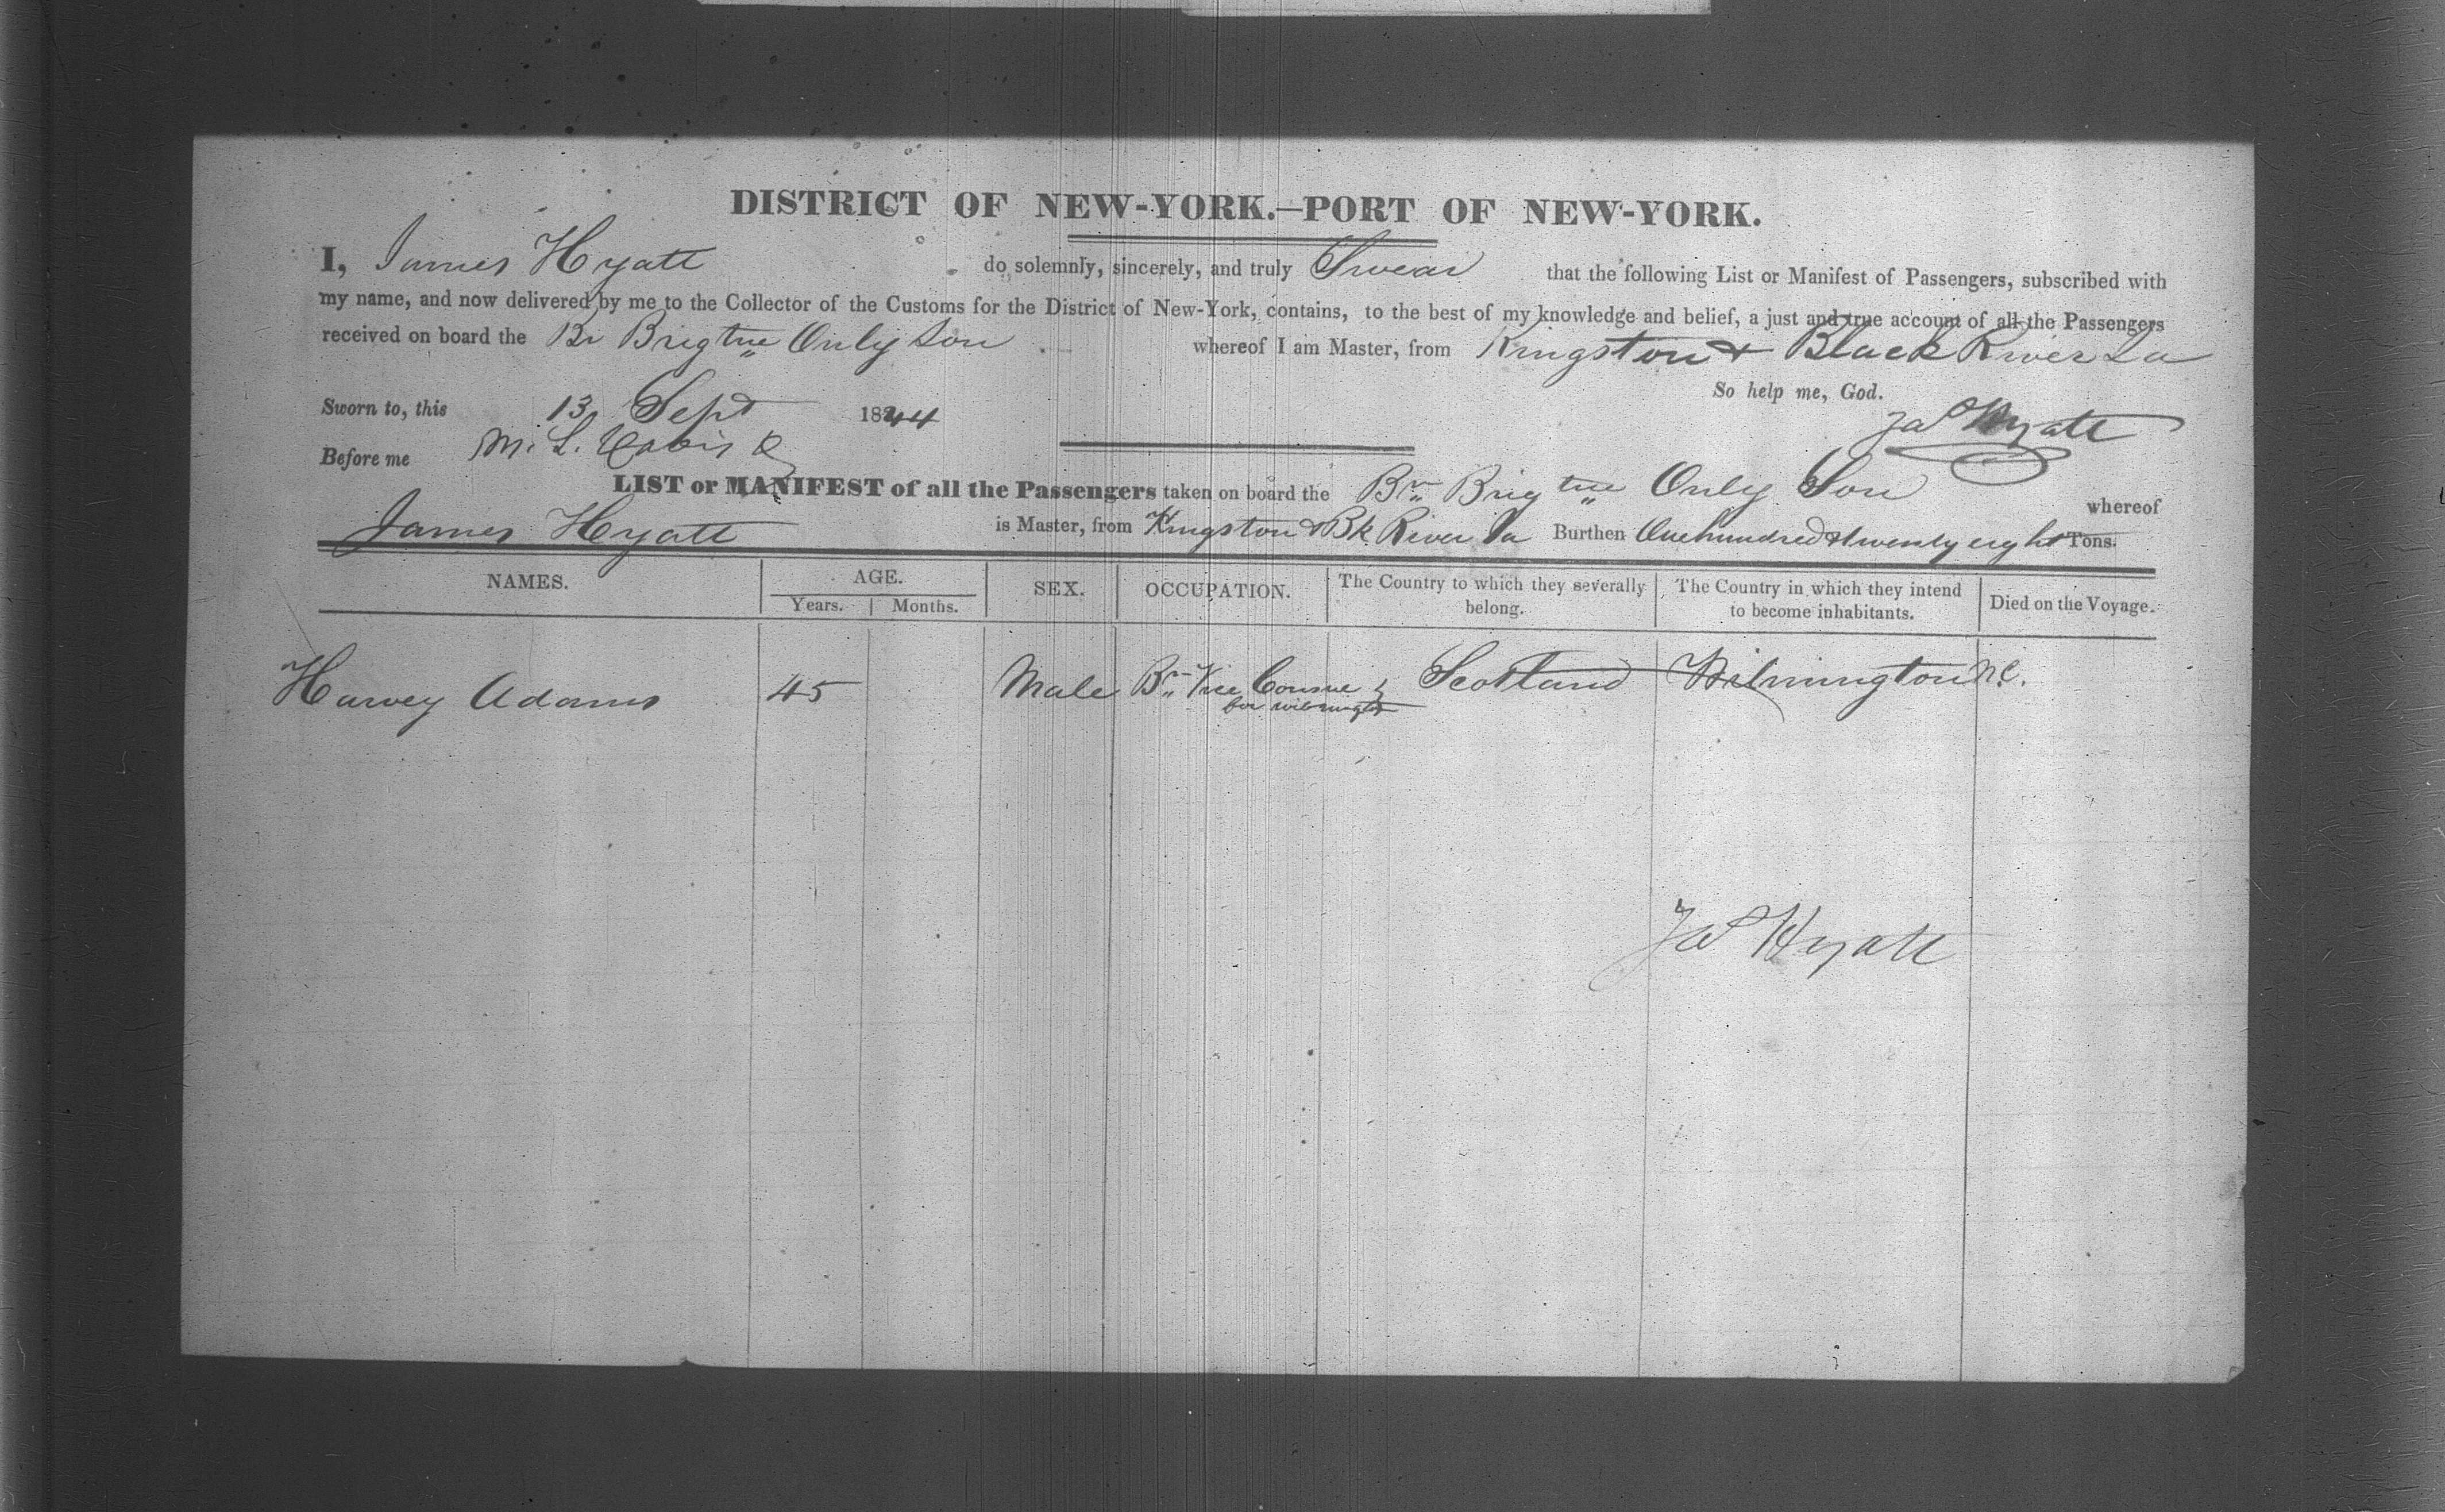 DISTRICT OF NEW-YORK.—PORT OF NEW-YORK.
I, James Hyatt do solemnly, sincerely, and truly Swear that the following List or Manifest of Passengers, subscribed with
my name, and now delivered by me to the Collector of the Customs for the District of New-York, contains, to the best of my knowledge and belief, a just and true account of all the Passengers
received on board the Br Brigtne Only Son whereof I am Master, from Kingston & Black River Ja
So help me, God.
Sworn to, this 13 Sept 1844
Jas Hyatt
Before me M. L.
LIST or MANIFEST of all the Passengers taken on board the Br Brigtne Only Son whereof
James Hyatt is Master, from Kingston & Bk River Ja Burthen One hundred & twenty eight Tons.
NAMES. AGE. SEX. OCCUPATION. The Country to which they severally belong. The Country in which they intend to become inhabitants. Died on the Voyage.
Years. Months.
Harvey Adams 45 Male Br Vice Scotland Wilmington N.C.
for Wilmington
Jas Hyatt